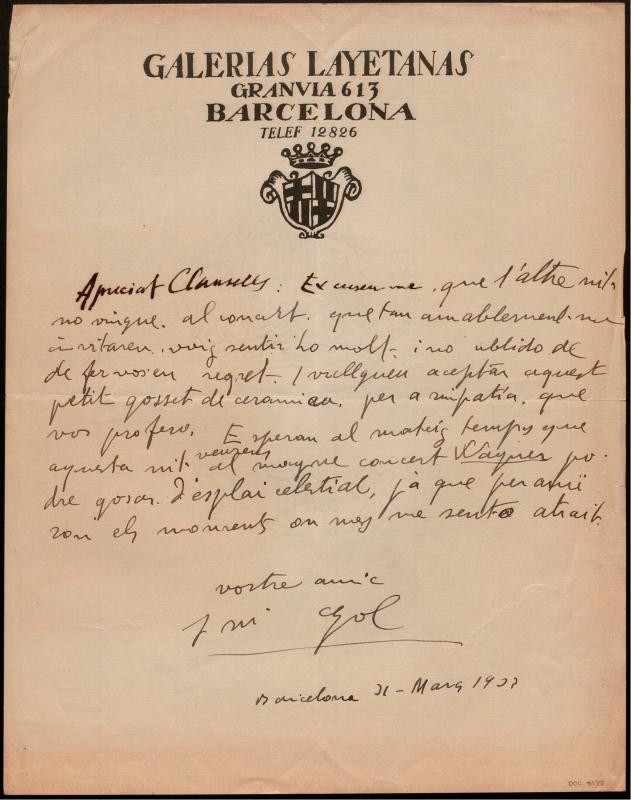 GALERIAS LAYETANAS
GRANVIA 613
BARCELONA
TELEF 12826
Apreciat Clausells: Excuseu-me, que l'altre nit
no vingue, al concert, que tan amablement me
invitareu, vaig sentir ho molt, i no oblido de
de fer vos en regret. I vullgueu aceptar aquest
petit gosset de ceramica, per a simpatía, que
vos profero. Esperan al mateix temps que
aquesta nit veurens al magne concert Wagner po
dre gosar d'esplai celestial, ja que per a mi
son els moments on mes me sento atrait.
vostre amic
Gol
Barcelona 31 - Març 1933